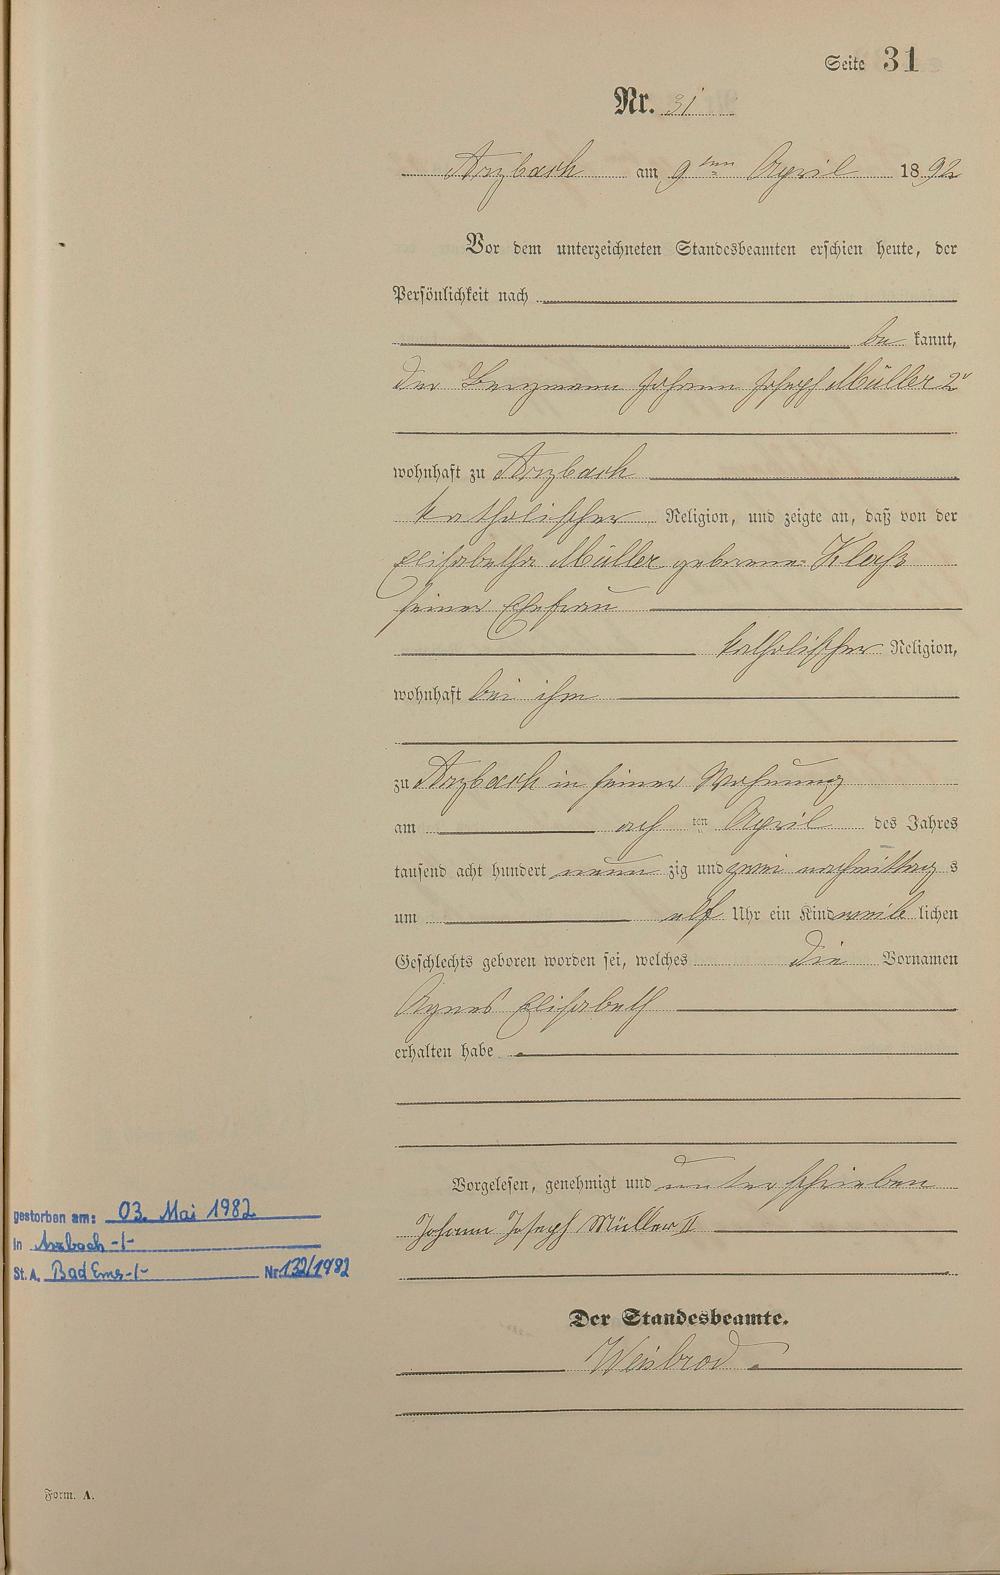 Seite 31
Nr. 31
Arzbach am 9ten April 1892
Vor dem unterzeichneten Standesbeamten erschien heute, der
Persönlichkeit nach
be kannt,
der Bergmann Johann Joseph Müller 2r
wohnhaft zu Arzbach
katholischer Religion, und zeigte an, daß von der
Elisabetha Müller geborene Klaß
seiner Ehefrau
katholischer Religion,
wohnhaft bei ihm
zu Arzbach in seiner Wohnung
am acht ten April des Jahres
tausend acht hundert neun zig und zwei nachmittag s
um elf Uhr ein Kind weib lichen
Geschlechts geboren worden sei, welches die Vornamen
Agnes Elisabeth
erhalten habe
Vorgelesen, genehmigt und unterschrieben
Johann Joseph Müller II
gestorben am: 03. Mai 1982
in Arzbach -/-
St. A. Bad Ems -/- Nr. 132/1982
Der Standesbeamte.
Weisbrod
Form. A.